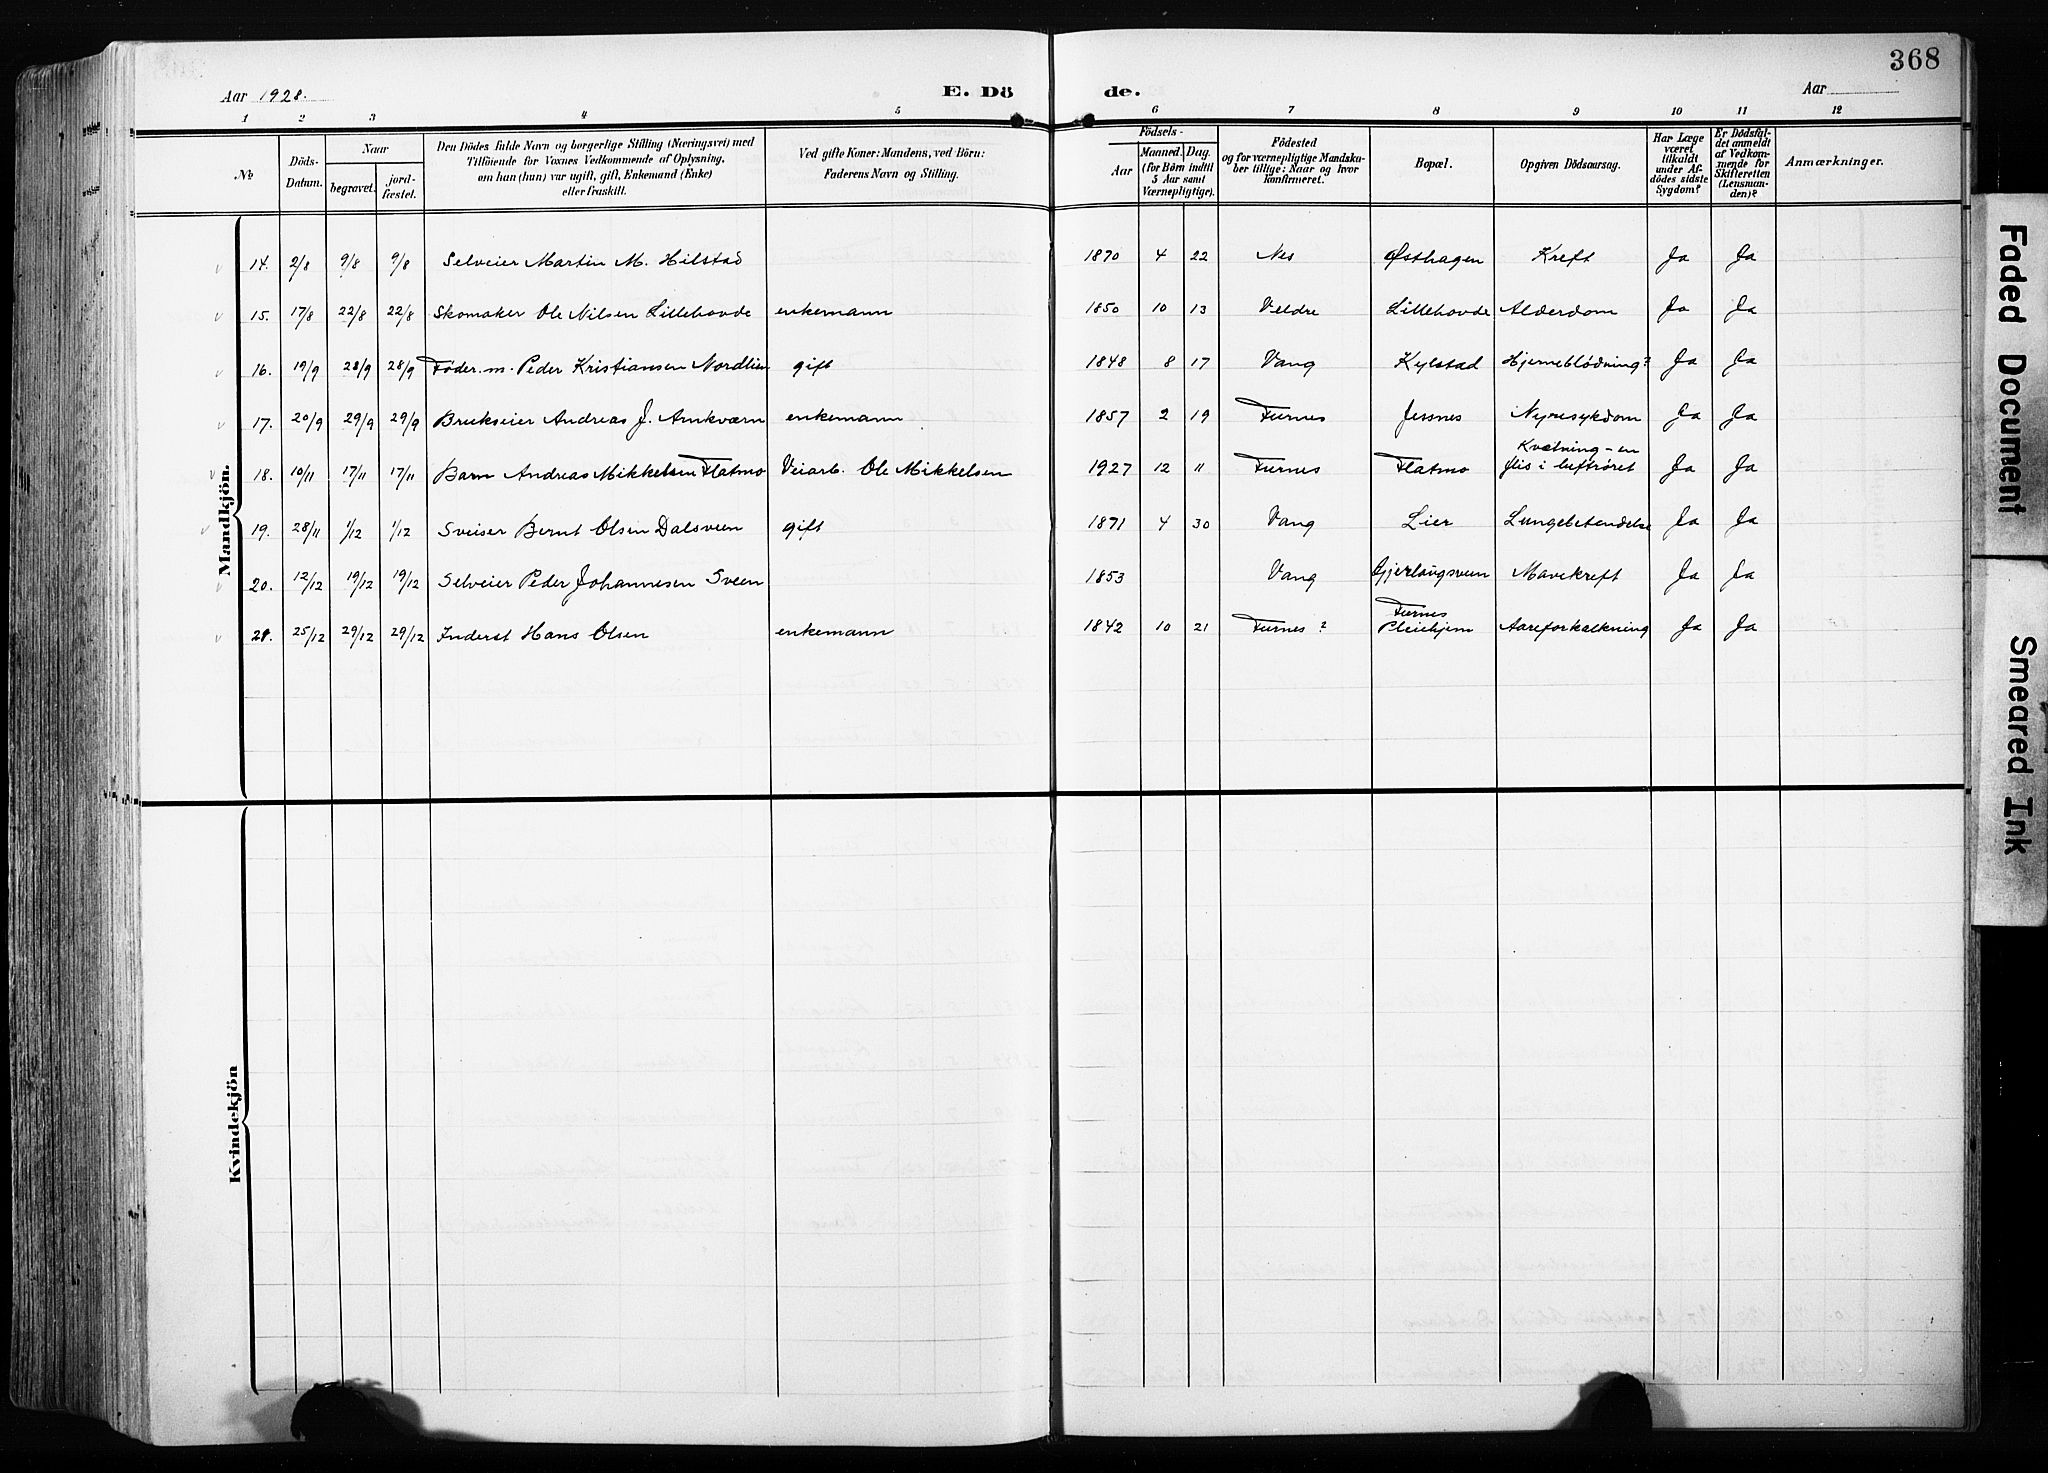 368
Aar 1928.
E. Dö de.
Aar
1 2 3 4 5 6 7 8 9 10 11 12
No
Döds-Datum.
Naar
begravet.
jord-fæstet.
Den Dödes fulde Navn og borgerlige Stilling (Næringsvei) med
Tilföiende for Voxnes Vedkommende af Oplysning,
om han (hun) var ugift, gift, Enkemand (Enke)
eller fraskilt.
Ved gifte Koner: Mandens, ved Börn:
Faderens Navn og Stilling.
Födsels-
Aar
Maaned. Dag.
(for Börn indtil
5 Aar samt
Værnepligtige).
Födested
og for værnepligtige Mandska-
ber tillige: Naar og hvor
konfirmeret.
Bopæl.
Opgiven Dödsaarsag.
Har Læge
været
tilkaldt
under Af-
dödes sidste
Sygdom?
Er Dödsfal-
det anmeldt
af Vedkom-
mende for
Skifteretten
(Lensman-
den)?
Anmærkninger.
Mandkjön.
14. 2/8 9/8 9/8 Selveier Martin M. Hilstad 1870 4 22 Nes Østhagen Kreft Ja Ja
15. 17/8 22/8 22/8 Skomaker Ole Nilsen Lillehovde enkemann 1850 10 13 Veldre Lillehovde Alderdom Ja Ja
16. 19/9 28/9 28/9 Føder.m. Peder Kristiansen Nordlien gift 1848 8 17 Vang Kylstad Hjerneblödning? Ja Ja
17. 20/9 29/9 29/9 Brukseier Andreas J. Arnkværn enkemann 1857 2 19 Furnes Jessnes Nyresykdom Ja Ja
18. 10/11 17/11 17/11 Barn Andreas Mikkelsen Flatmo Veiarb. Ole Mikkelsen 1927 12 11 Furnes Flatmo Kvælning - en
flis i luftrøret Ja Ja
19. 28/11 1/12 1/12 Sveiser Bernt Olsen Dalsveen gift 1871 4 30 Vang Lier Lungebetendelse Ja Ja
20. 12/12 19/12 19/12 Selveier Peder Johannesen Sveen 1853 Vang Gjerlaugsveen Mavekreft Ja Ja
21. 25/12 29/12 29/12 Inderst Hans Olsen enkemann 1842 10 21 Furnes ? Furnes
Pleiehjem Aareforkalkning Ja Ja
Kvindekjön
Faded Document
Smeared Ink